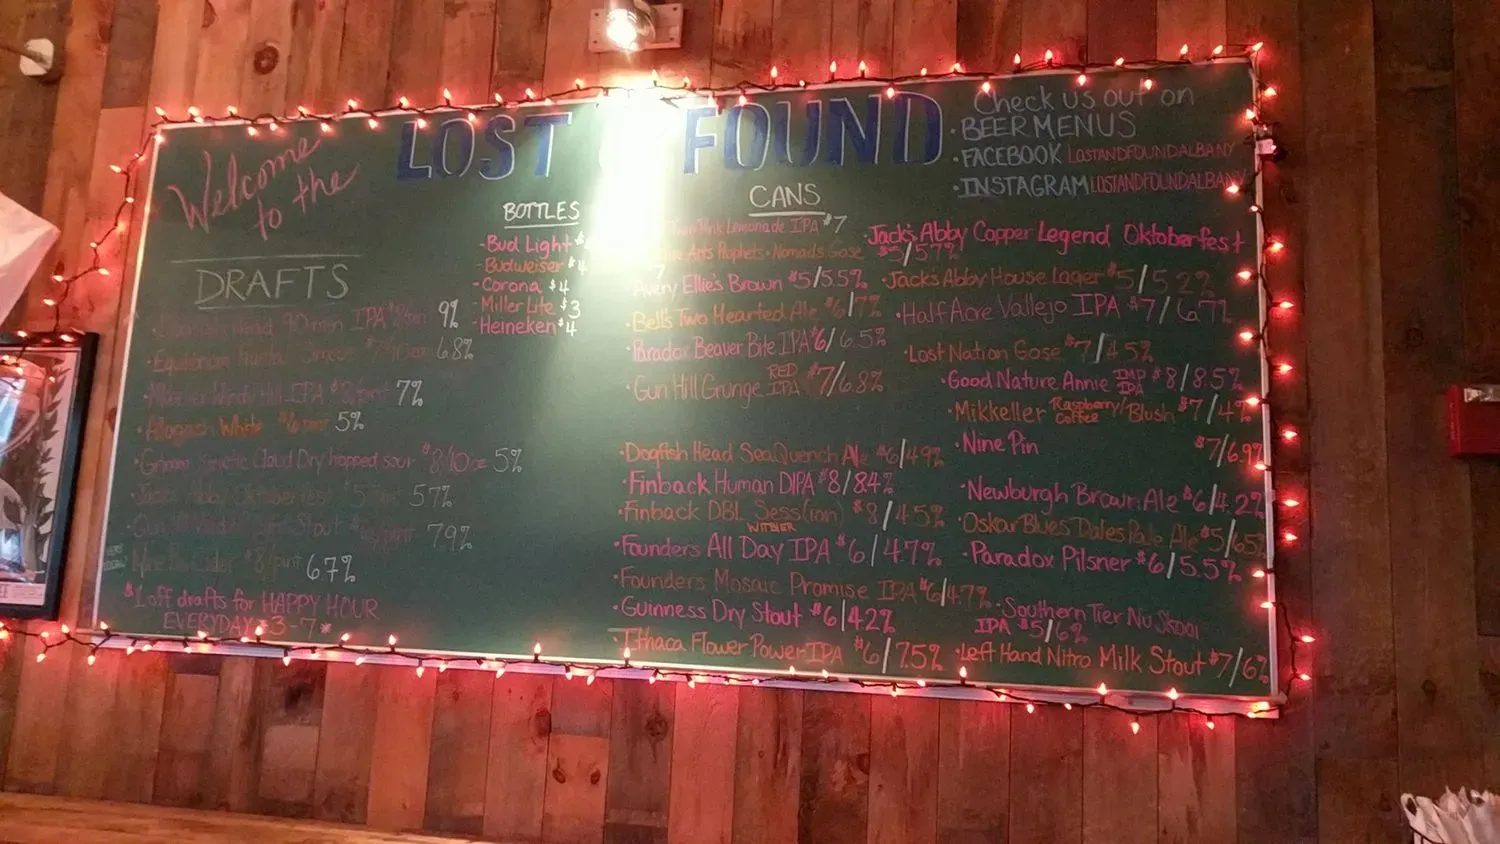 Welcome
to the
LOST FOUND
Check us out on
· BEERMENUS
· FACEBOOK LOSTANDFOUNDALBANY
· INSTAGRAM LOSTANDFOUNDALBANY
DRAFTS
Head 90 min IPA 9%
6.8%
IPA 7%
· Allagash White $6/pint 5%
Cloud Dry hopped sour $8/10oz 5%
Oktoberfest 5.7%
Stout 7.9%
Nine Pin Cider $8/pint 6.7%
$1 off drafts for HAPPY HOUR
EVERYDAY 3-7
BOTTLES
- Bud Light
- Budweiser $4
- Corona $4
- Miller Lite $3
- Heineken $4
CANS
Pink Lemonade IPA $7
Arts Prophets · Nomads Gose
7
Avery Ellie's Brown $5/5.5%
· Bell's Two Hearted Ale $6/7%
· Paradox Beaver Bite IPA $6/6.5%
· Gun Hill Grunge RED IPA $7/6.8%
· Dogfish Head SeaQuench Ale $6/4.9%
· Finback Human DIPA $8/8.4%
· Finback DBL Sess(ion) $8/4.5%
WITBIER
· Founders All Day IPA $6/4.7%
· Founders Mosaic Promise IPA $6/4.7%
· Guinness Dry Stout $6/4.2%
· Ithaca Flower Power IPA $6/7.5%
· Jack's Abby Copper Legend Oktoberfest
$5/5.7%
· Jack's Abby House Lager $5/5.2%
· Half Acre Vallejo IPA $7/6.7%
· Lost Nation Gose $7/4.5%
· Good Nature Annie IMP IPA $8/8.5%
· Mikkeller Raspberry/Coffee Blush $7/4%
· Nine Pin $7/6.9%
· Newburgh Brown Ale $6/4.2%
· Oskar Blues Dales Pale Ale $5/6.5%
· Paradox Pilsner $6/5.5%
· Southern Tier Nu Skool
IPA $5/6%
· Left Hand Nitro Milk Stout $7/6%